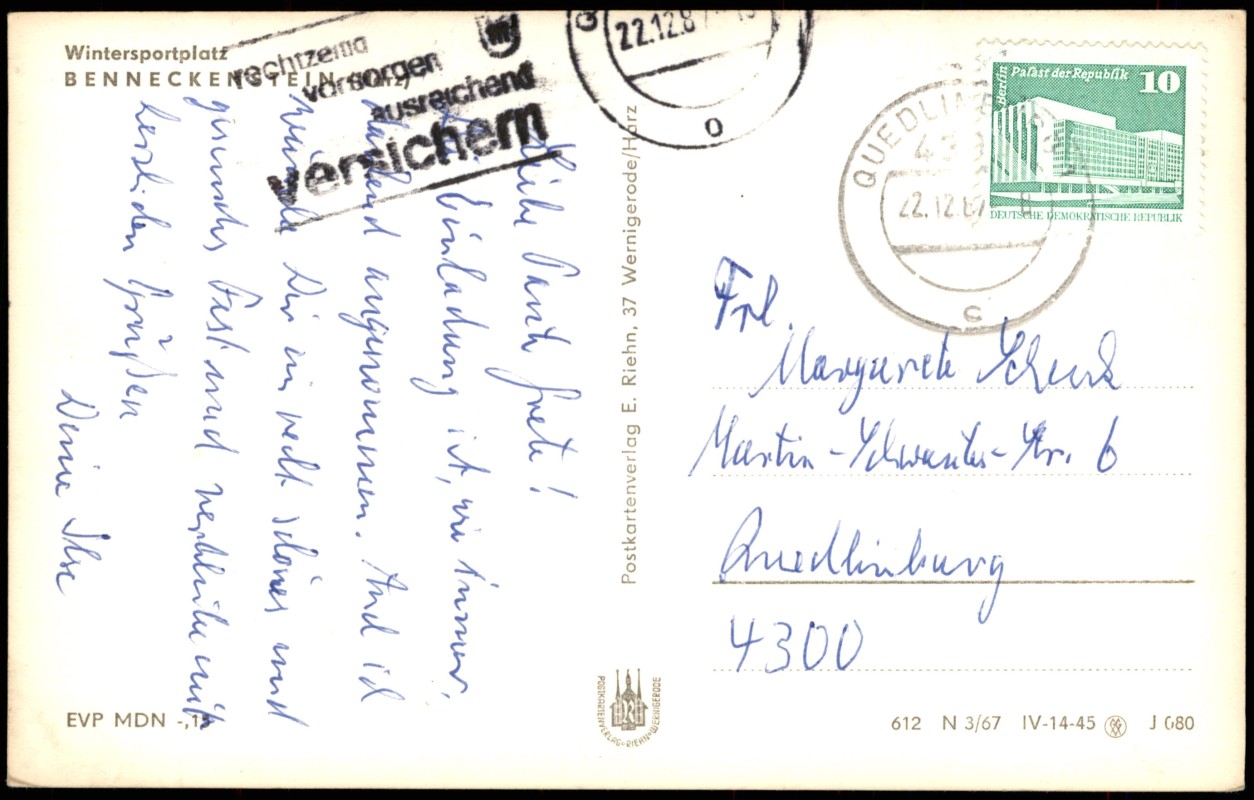 Wintersportplatz
BENNECKENSTEIN (Harz)
rechtzeitig
vorsorgen
ausreichend
versichern
22.12.87
Berlin
Palast der Republik 10
DEUTSCHE DEMOKRATISCHE REPUBLIK
QUEDLINBURG
22.12.87
c
Liebe Tante Grete!
Einladung ist, wie immer,
dankend angenommen. Auch ich
wünsche Dir ein recht schönes und
gesundes Fest und verbleibe mit
herzlichen Grüßen
Deine Ilse
Postkartenverlag E. Riehn, 37 Wernigerode/Harz
Frl.
Margarete Schenk
Martin-Schwantes-Str. 6
Quedlinburg
4300
POSTKARTENVERLAG·RIEHN·WERNIGERODE
EVP MDN -,15
612 N 3/67 IV-14-45 J 080